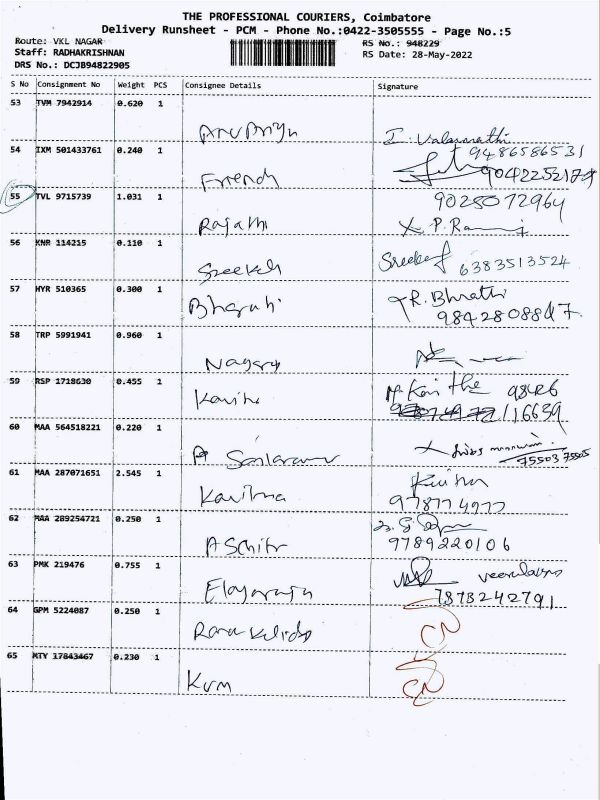 THE PROFESSIONAL COURIERS, Coimbatore
Delivery Runsheet - PCM - Phone No.:0422-3505555 - Page No.:5
Route: VKL NAGAR
RS No.: 948229
Staff: RADHAKRISHNAN
RS Date: 28-May-2022
DRS No.: DCJB94822905
S No Consignment No Weight PCS Consignee Details Signature
53 TVM 7942914 0.620 1
54 IXM 501433761 0.240 1 Friends
9486586531
9042252179
55 TVL 9715739 1.031 1 Rajathi
9025072964
X P.
56 KNR 114215 0.110 1
6383513524
57 HYR 510365 0.300 1 Bharathi
R. Bhrathi
9842808847
58 TRP 5991941 0.960 1 Nagaraj
59 RSP 1718630 0.455 1 Kavitha
98426
/16639
60 MAA 564518221 0.220 1
75503 75505
61 MAA 287071651 2.545 1 Kavitha
978774977
62 MAA 289254721 0.250 1
9789220106
63 PMK 219476 0.755 1 Elayaraja
7373242791
64 GPM 5224087 0.250 1
CN
65 MTY 17843467 0.230 1 KVM
CN